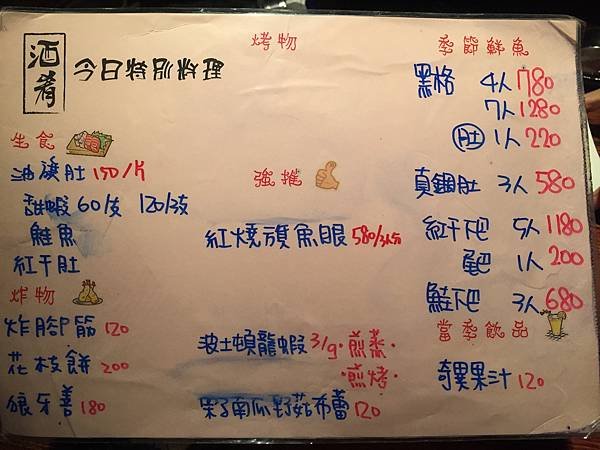 酒肴
今日特別料理
生食
油旗肚 150/片
甜蝦 60/支 120/3支
鮭魚
紅干肚
炸物
炸腳筋 120
花枝餅 200
狼牙善 180
烤物
強推
紅燒旗魚眼 580/3人份
波士頓龍蝦 3/g ·煎蒸·
·煎烤·
栗子南瓜野菇布蕾 120
季節鮮魚
黑格 4人 780
7人 1280
肚 1人 220
真鯛肚 3人 580
紅干下巴 5人 1180
魚巴 1人 200
鮭下巴 3人 680
當季飲品
奇異果汁 120